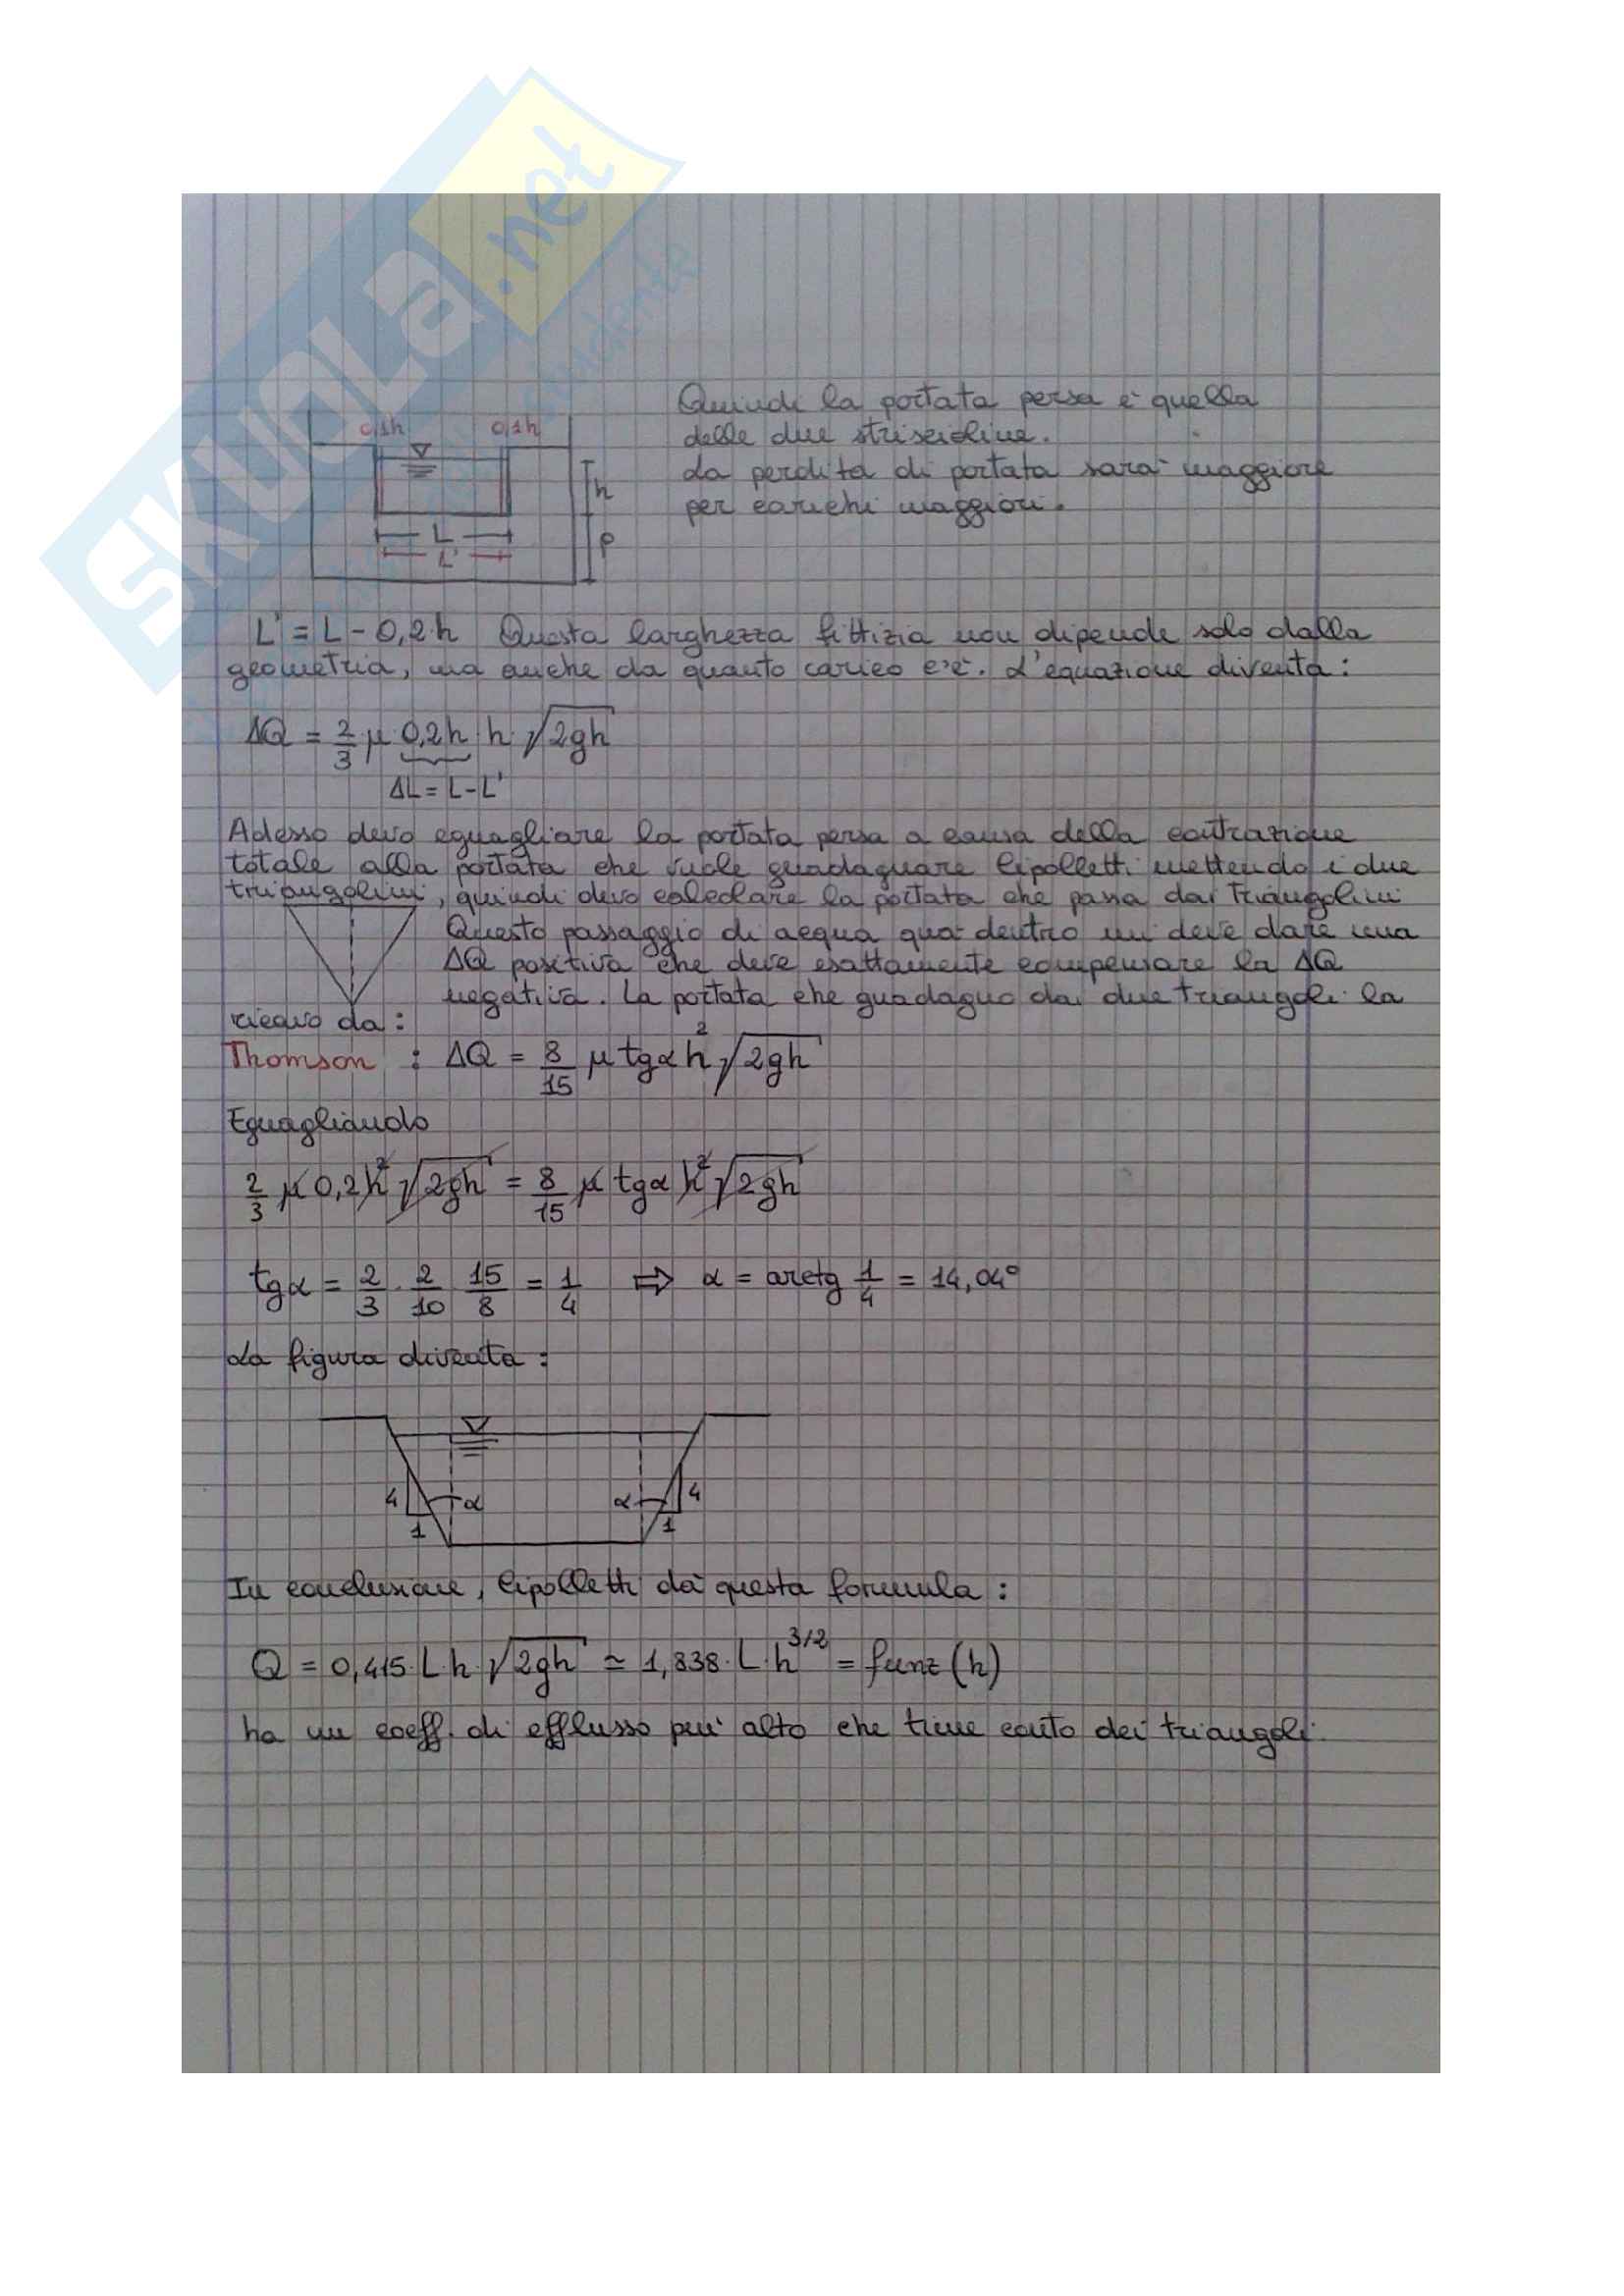 SKUOLA.net
0,1h 0,1h
Quindi la portata persa è quella
delle due striscioline.
La perdita di portata sarà maggiore
per carichi maggiori.
h
L
L'
p
L' = L - 0,2·h Questa larghezza fittizia non dipende solo dalla
geometria, ma anche da quanto carico c'è. L'equazione diventa:
ΔQ = 2/3 μ 0,2h h √2gh
ΔL = L - L'
Adesso devo eguagliare la portata persa a causa della contrazione
totale alla portata che vuole guadagnare Cipolletti mettendo i due
triangolini, quindi devo calcolare la portata che passa dai triangolini
Questo passaggio di acqua qua dentro mi deve dare una
ΔQ positiva che deve esattamente compensare la ΔQ
negativa. La portata che guadagno dai due triangoli la
ricavo da:
Thomson : ΔQ = 8/15 μ tgα h² √2gh
Eguagliando
2/3 μ 0,2 h² √2gh = 8/15 μ tgα h² √2gh
tgα = 2/3 · 2/10 15/8 = 1/4 ⇒ α = arctg 1/4 = 14,04°
La figura diventa:
4 α α 4
1 1
In conclusione, Cipolletti dà questa formula:
Q = 0,415·L·h·√2gh ≃ 1,838·L·h^3/2 = funz(h)
ha un coeff. di efflusso più alto che tiene conto dei triangoli.